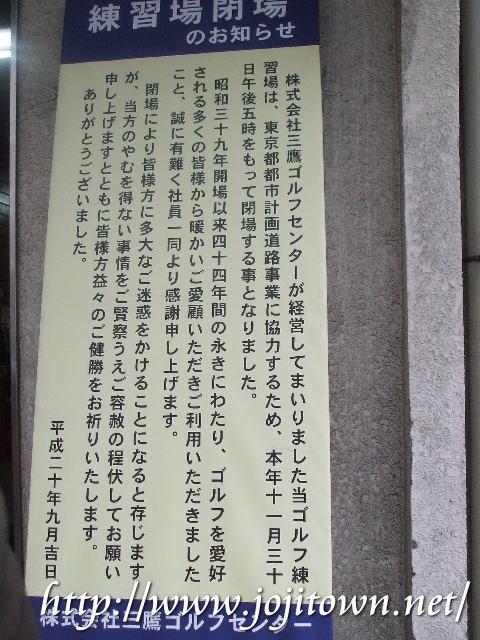 練習場閉場
のお知らせ
株式会社三鷹ゴルフセンターが経営してまいりました当ゴルフ練
習場は、東京都都市計画道路事業に協力するため、本年十一月三十
日午後五時をもって閉場する事となりました。
昭和三十九年開場以来四十四年間の永きにわたり、ゴルフを愛好
される多くの皆様から暖かいご愛顧いただきご利用いただきました
こと、誠に有難く社員一同より感謝申し上げます。
閉場により皆様方に多大なご迷惑をかけることになると存じます
が、当方のやむを得ない事情をご賢察うえご容赦の程伏してお願い
申し上げますとともに皆様方益々のご健勝をお祈りいたします。
ありがとうございました。
平成二十年九月吉日
株式会社三鷹ゴルフセンター
http://www.jojitown.net/